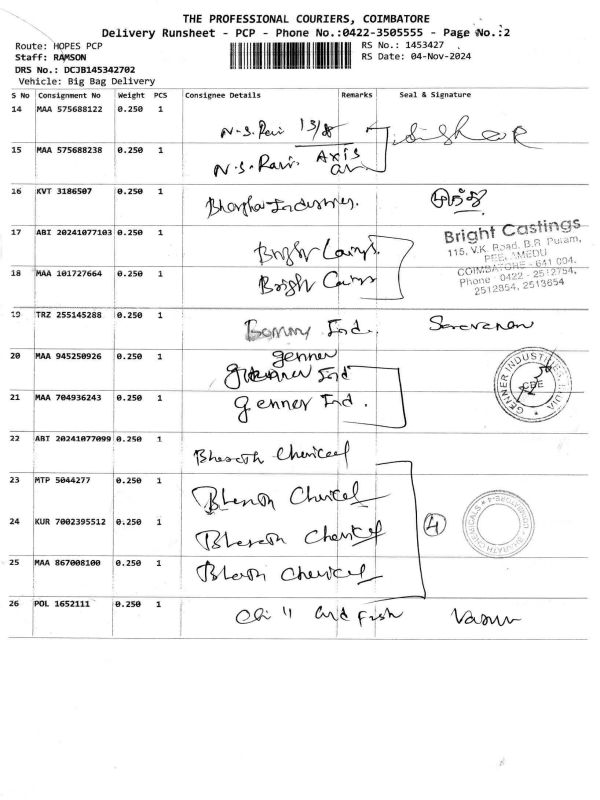 THE PROFESSIONAL COURIERS, COIMBATORE
Delivery Runsheet - PCP - Phone No.:0422-3505555 - Page No.:2
Route: HOPES PCP RS No.: 1453427
Staff: RAMSON RS Date: 04-Nov-2024
DRS No.: DCJB145342702
Vehicle: Big Bag Delivery
S No Consignment No Weight PCS Consignee Details Remarks Seal & Signature
14 MAA 575688122 0.250 1
N.S. Ravi 13/8
15 MAA 575688238 0.250 1
N.S. Ravi. Axis
16 KVT 3186507 0.250 1
Industries.
17 ABI 20241077103 0.250 1
Bright
Bright Castings
115, V.K. Road, B.R. Puram,
COIMBATORE - 641 004.
Phone : 0422 - 2512754,
2512854, 2513654
18 MAA 101727664 0.250 1
Bright
19 TRZ 255145288 0.250 1
Ind. Saravanan
20 MAA 945250926 0.250 1
genner
Ind
GENNER INDUSTRIES INDIA
CBE
21 MAA 704936243 0.250 1
genner Ind.
22 ABI 20241077099 0.250 1
Bharath Chemical
23 MTP 5044277 0.250 1
Bharath Chemical
24 KUR 7002395512 0.250 1
Bharath Chemical
4
25 MAA 867008100 0.250 1
Bharath Chemical
26 POL 1652111 0.250 1
Chill and fish